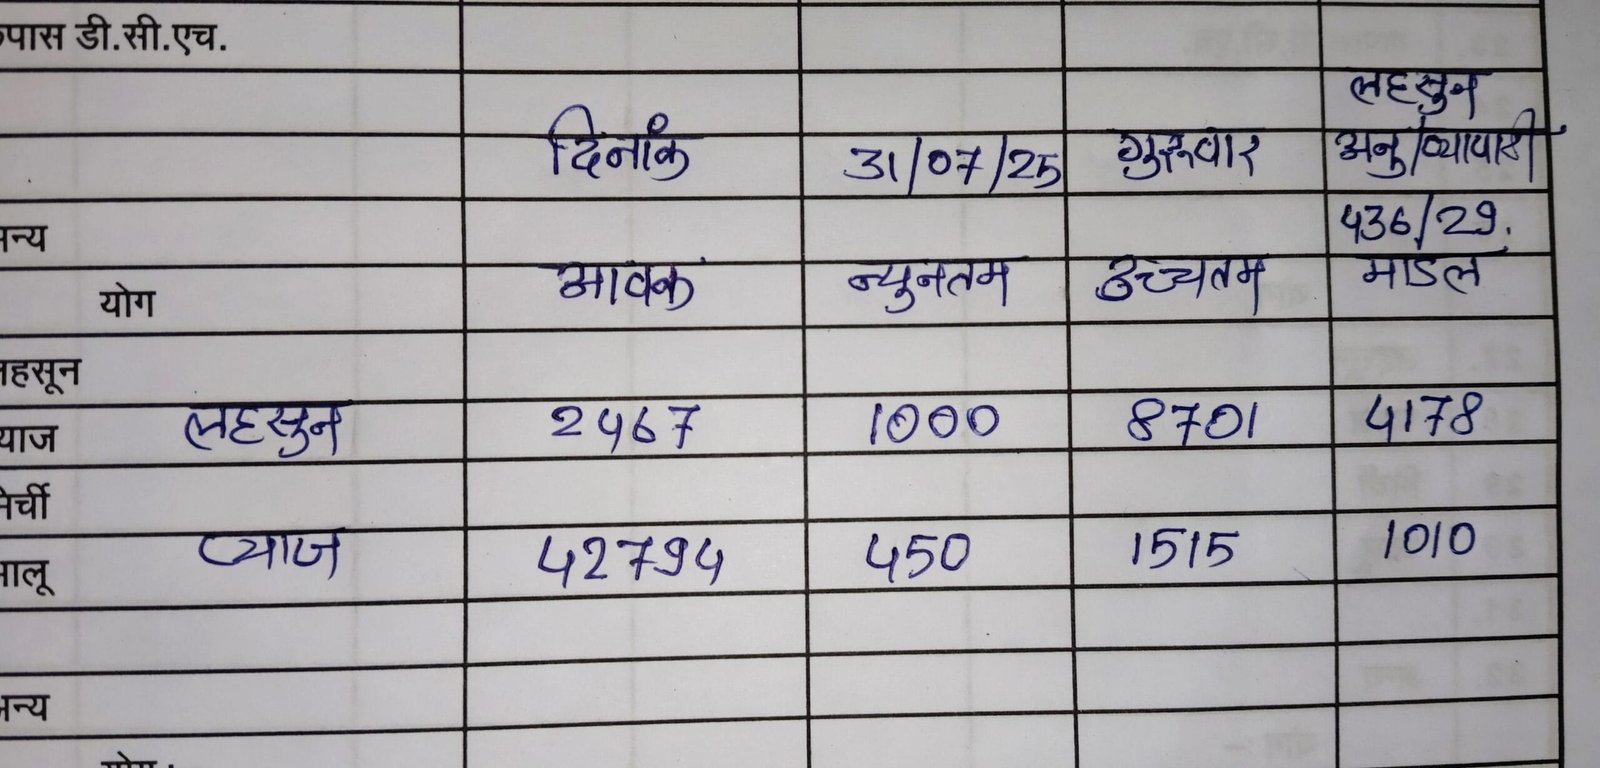 कपास डी.सी.एच.
लहसुन
दिनांक 31/07/25 गुरूवार अनु/व्यापारी
अन्य 436/29.
योग आवक न्युनतम उच्चतम माडल
लहसून
लहसुन 2467 1000 8701 4178
प्याज
मिर्ची
प्याज 42794 450 1515 1010
आलू
अन्य